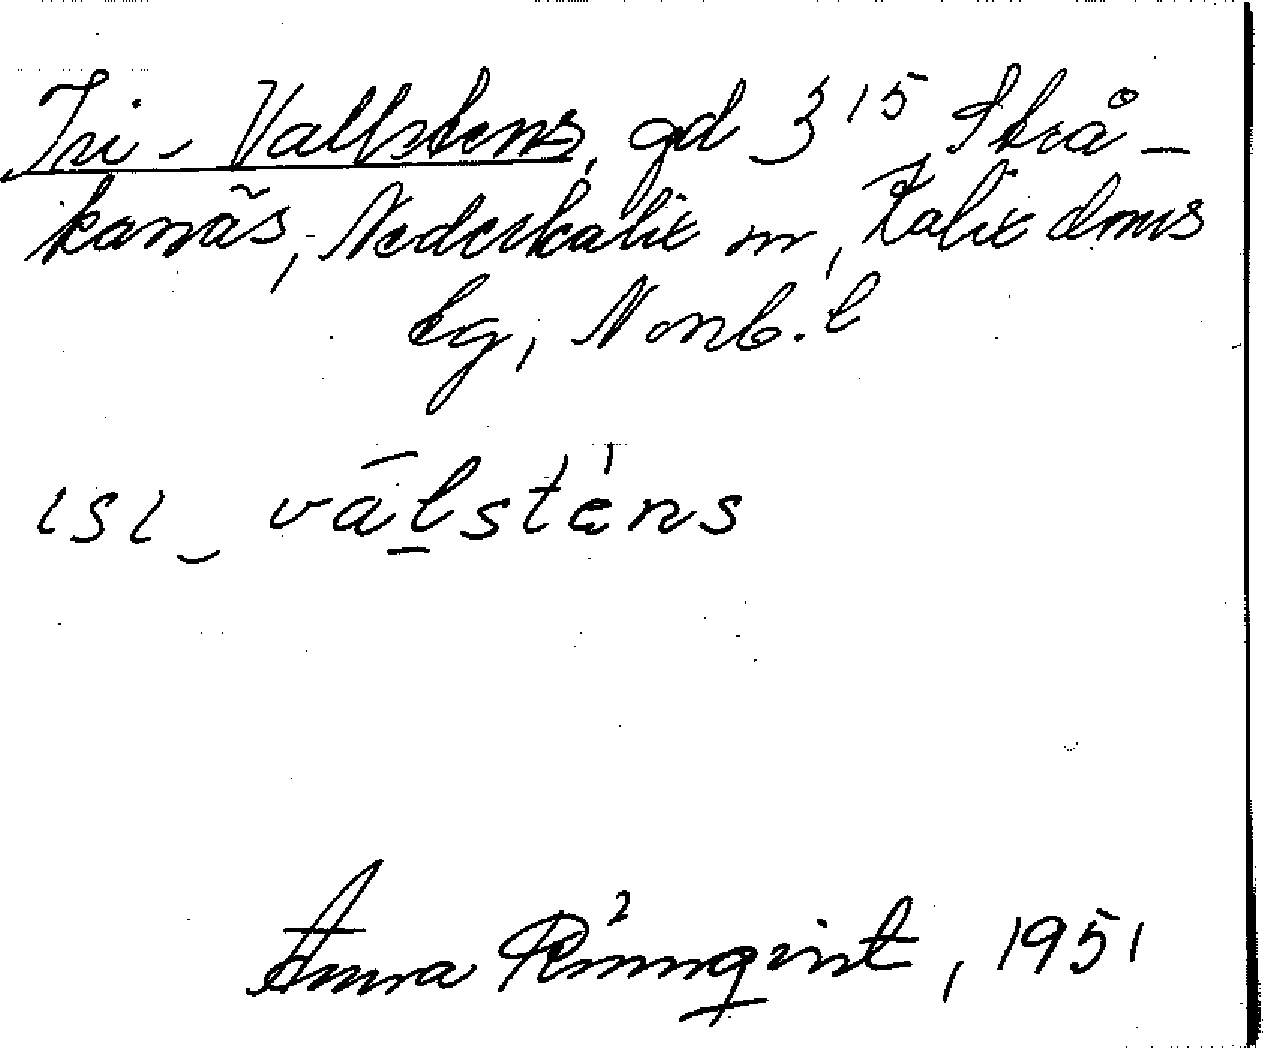 Isi-Vallstens, gd 3¹⁵ Strå-
kanäs, Nederkalix sn, Kalix dms
lg, Norrb. l
ɩsɩ‿vālsténs
Anna Rönnqvist, 1951